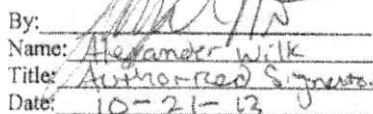 By:
Name: Alexander Wilk
Title: Authorized Signator
Date: 10-21-13